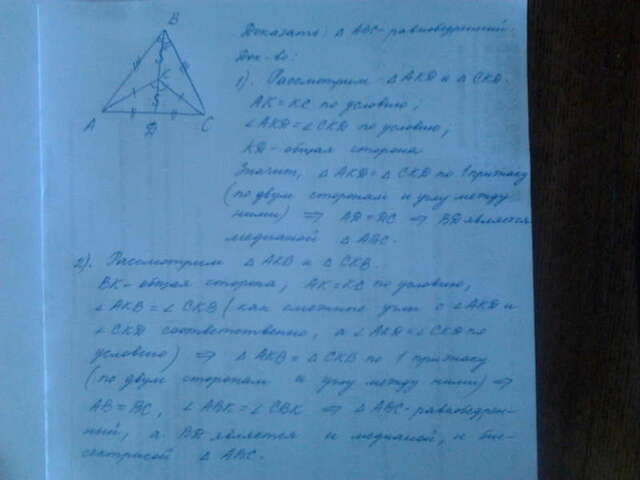 B
K
A
D
C
Доказать: △ ABC-равнобедренный.
Док-во:
1). Рассмотрим △ AKD и △ CKD.
AK = KC по условию;
∠AKD = ∠CKD по условию;
KD - общая сторона
Значит, △ AKD = △ CKD по 1 признаку
(по двум сторонам и углу между
ними) ⇒ AD = DC ⇒ BD является
медианой △ ABC.
2). Рассмотрим △ AKB и △ CKB.
BK - общая сторона, AK = KC по условию,
∠AKB = ∠CKB (как смежные углы с ∠AKD и
∠CKD соответственно, а ∠AKD = ∠CKD по
условию) ⇒ △ AKB = △ CKB по 1 признаку
(по двум сторонам и углу между ними) ⇒
AB = BC, ∠ABK = ∠CBK ⇒ △ ABC - равнобедрен-
ный, а BD является и медианой, и бис-
сектрисой △ ABC.